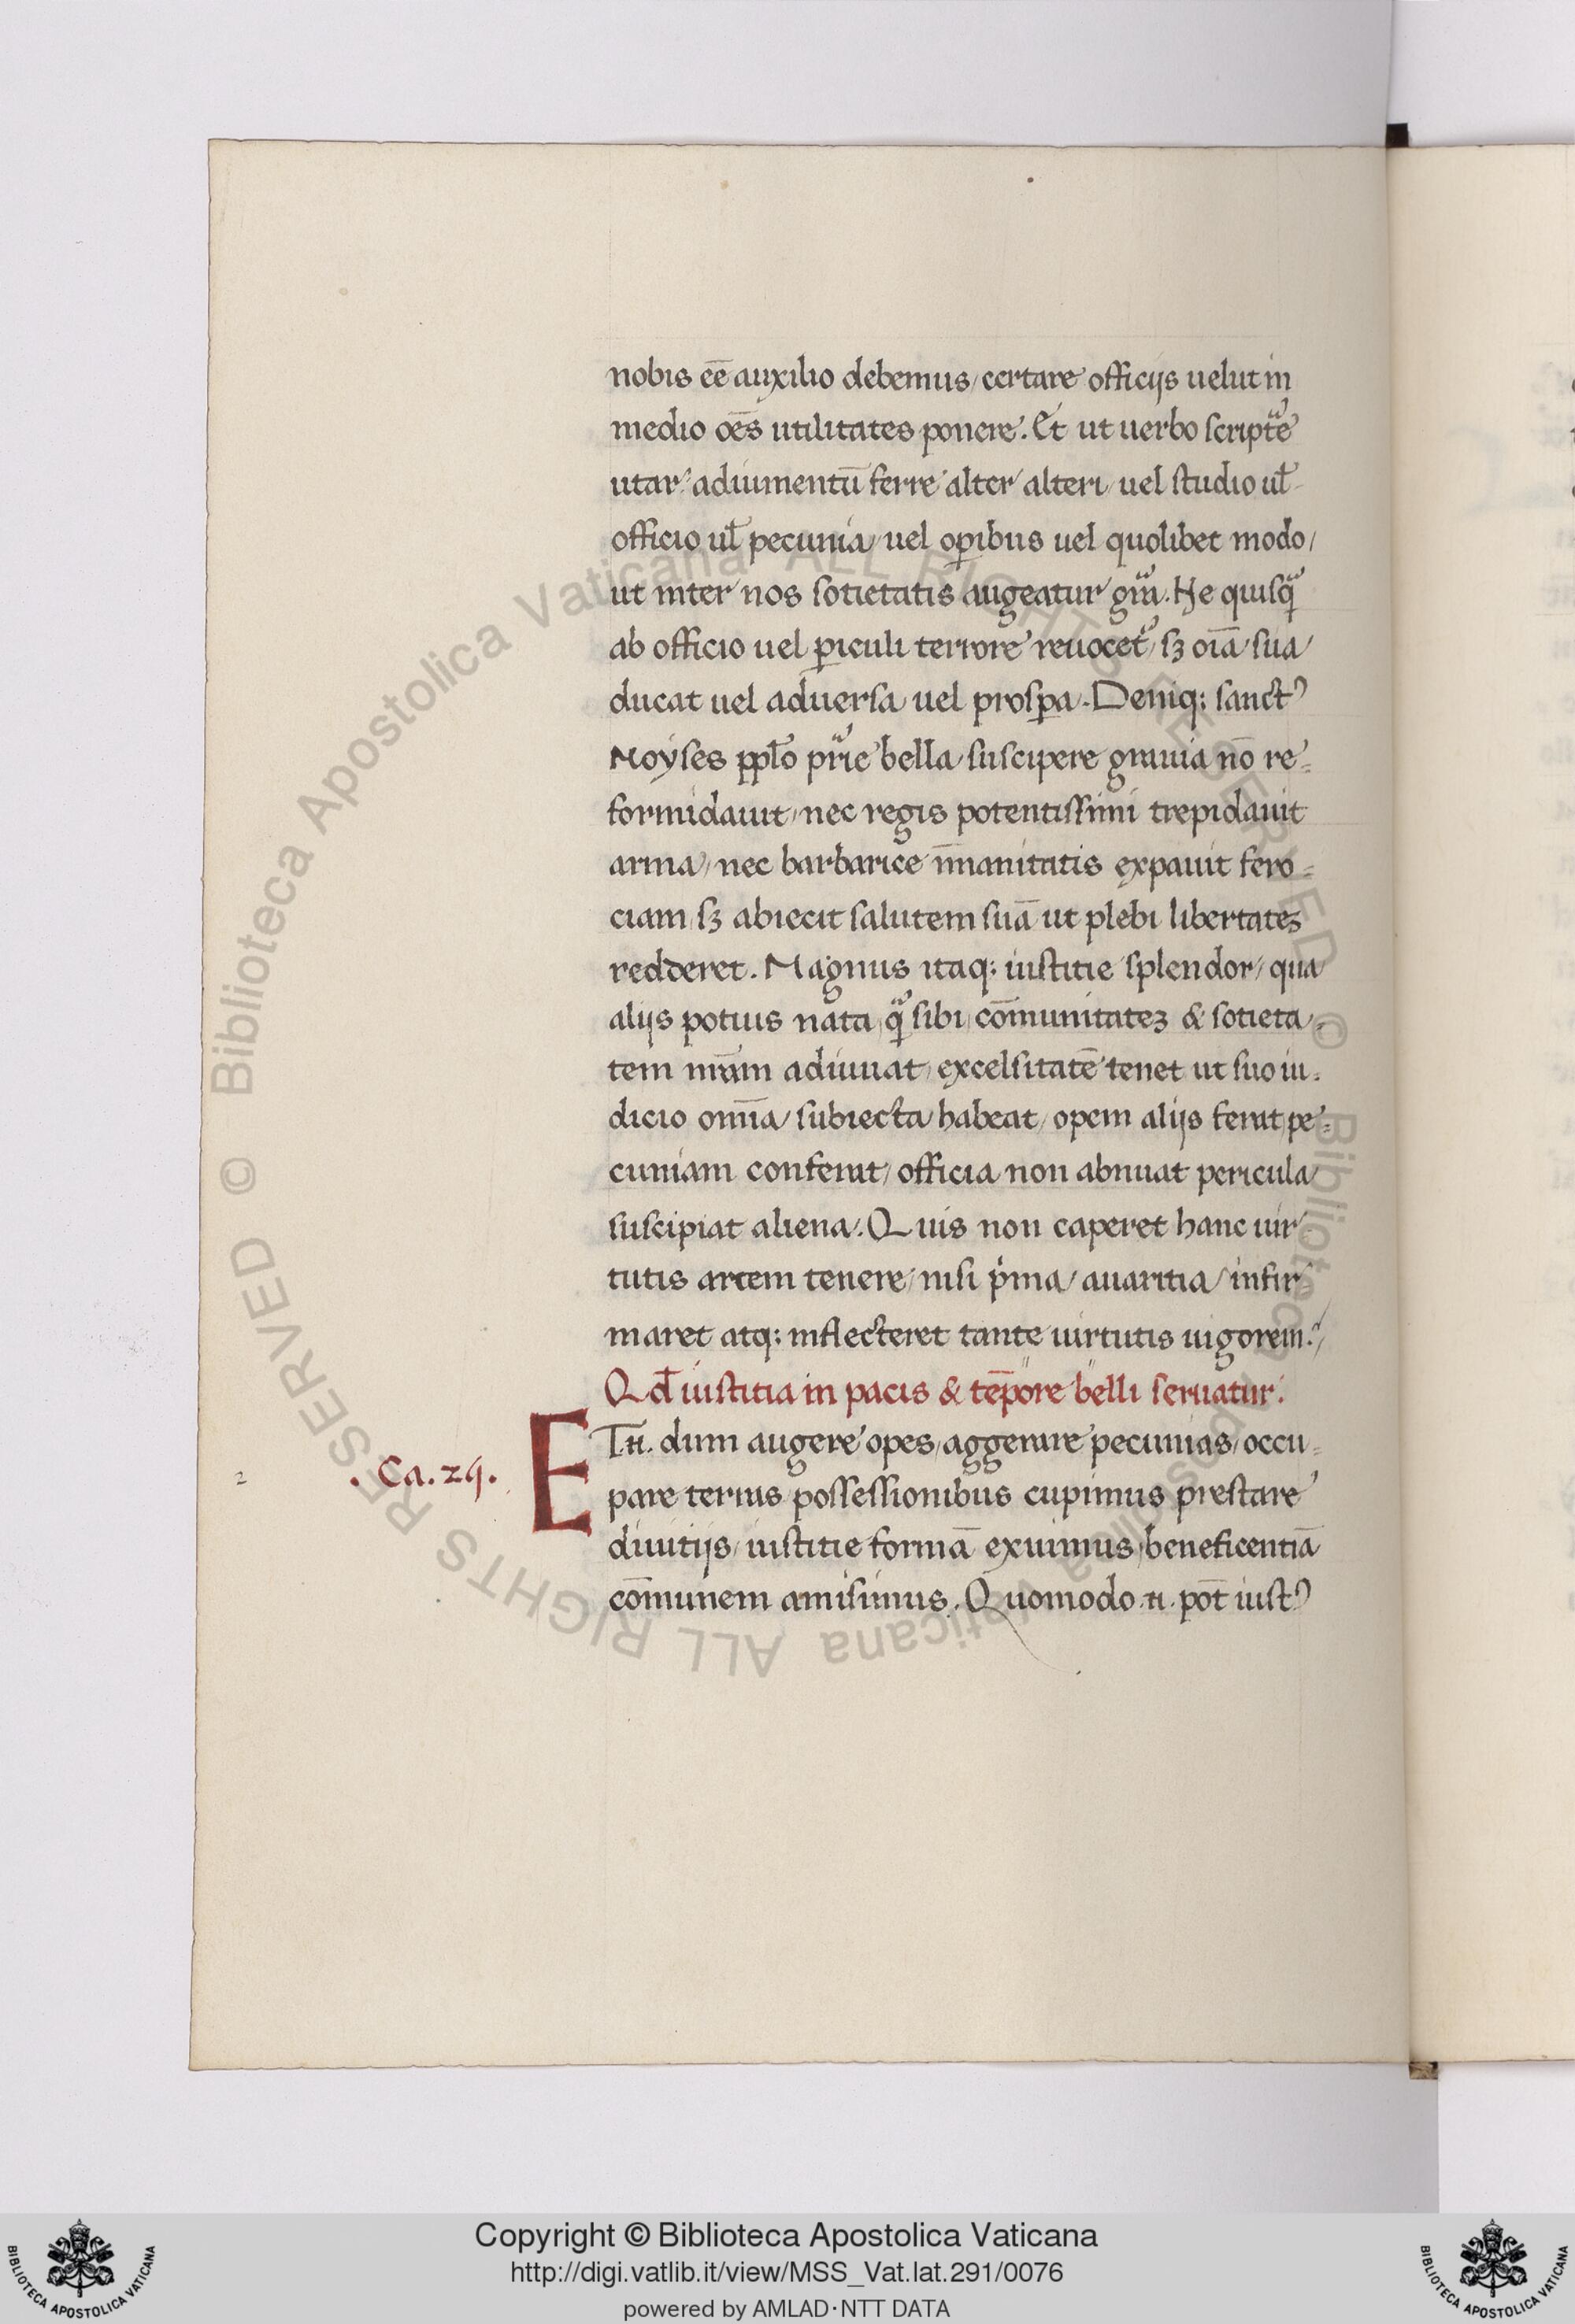 nobis eē auxilio debemus / certare officijs uelut in
medio oēs utilitates ponere. Et ut uerbo scripte
utar. adiumentū ferre alter alteri / uel studio ul̄
officio ul̄ pecunia / uel opibus uel quolibet modo /
ut inter nos sotietatis augeatur grā. Ne quisq
ab officio uel piculi terrore reuocet / sꝫ oīa sua
ducat uel aduersa uel prospa. Deniq: sanctꝰ
Moyses pplo prie bella suscipere grauia nō re=
formidauit / nec regis potentissimi trepidauit
arma / nec barbarice īmanitatis expauit fero=
ciam / sꝫ abiecit salutem suā ut plebi libertateꝫ
redderet. Magnus itaq: iustitie splendor / qua
alijs potius nata q sibi / cōmunitateꝫ & sotieta=
tem nr̄am adiuuat / excelsitatē tenet ut suo iu=
dicio omīa subiecta habeat / opem alijs ferat / pe=
cuniam conferat / officia non abnuat pericula
suscipiat aliena. Quis non caperet hanc uir
tutis arcem tenere / nisi pima / auaritia / infir
maret atq: inflecteret tante uirtutis uigorem.
Qd̄ iustitia in pacis & tēpore belli seruatur.
ET.n. dum augere opes / aggerare pecunias / occu=
. Ca. 29.
pare terras possessionibus cupimus prestare
diuitijs / iustitie formā exuimus / beneficentiā
cōmunem amisimus. Quomodo .n. pōt iustꝰ
Copyright © Biblioteca Apostolica Vaticana
http://digi.vatlib.it/view/MSS_Vat.lat.291/0076
powered by AMLAD·NTT DATA
BIBLIOTECA APOSTOLICA VATICANA
BIBLIOTECA APOSTOLICA VATICANA
© Biblioteca Apostolica Vaticana ALL RIGHTS RESERVED
© Biblioteca Apostolica Vaticana ALL RIGHTS RESERVED